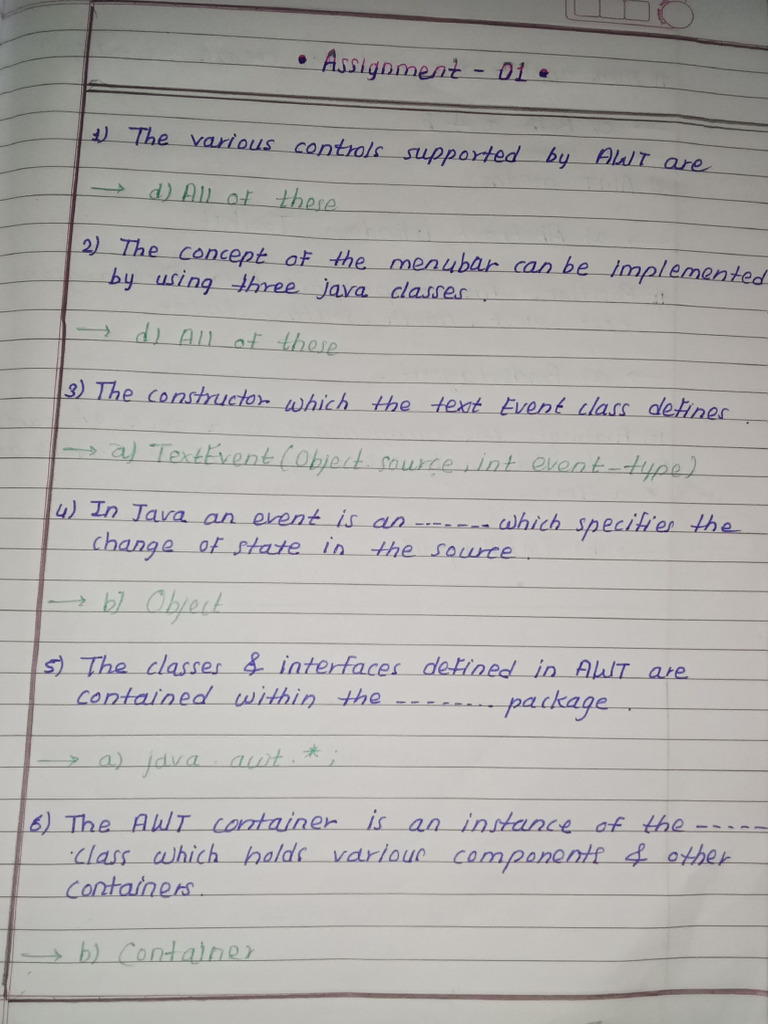 • Assignment - 01 •
1) The various controls supported by AWT are
→ d) All of these
2) The concept of the menubar can be implemented
by using three java classes.
→ d) All of these
3) The constructor which the text Event class defines.
→ a) TextEvent (Object source, int event-type)
4) In Java an event is an ------- which specifies the
change of state in the source.
→ b) Object
5) The classes & interfaces defined in AWT are
contained within the -------- package.
→ a) java.awt.*;
6) The AWT container is an instance of the -----
class which holds various components & other
containers.
→ b) Container